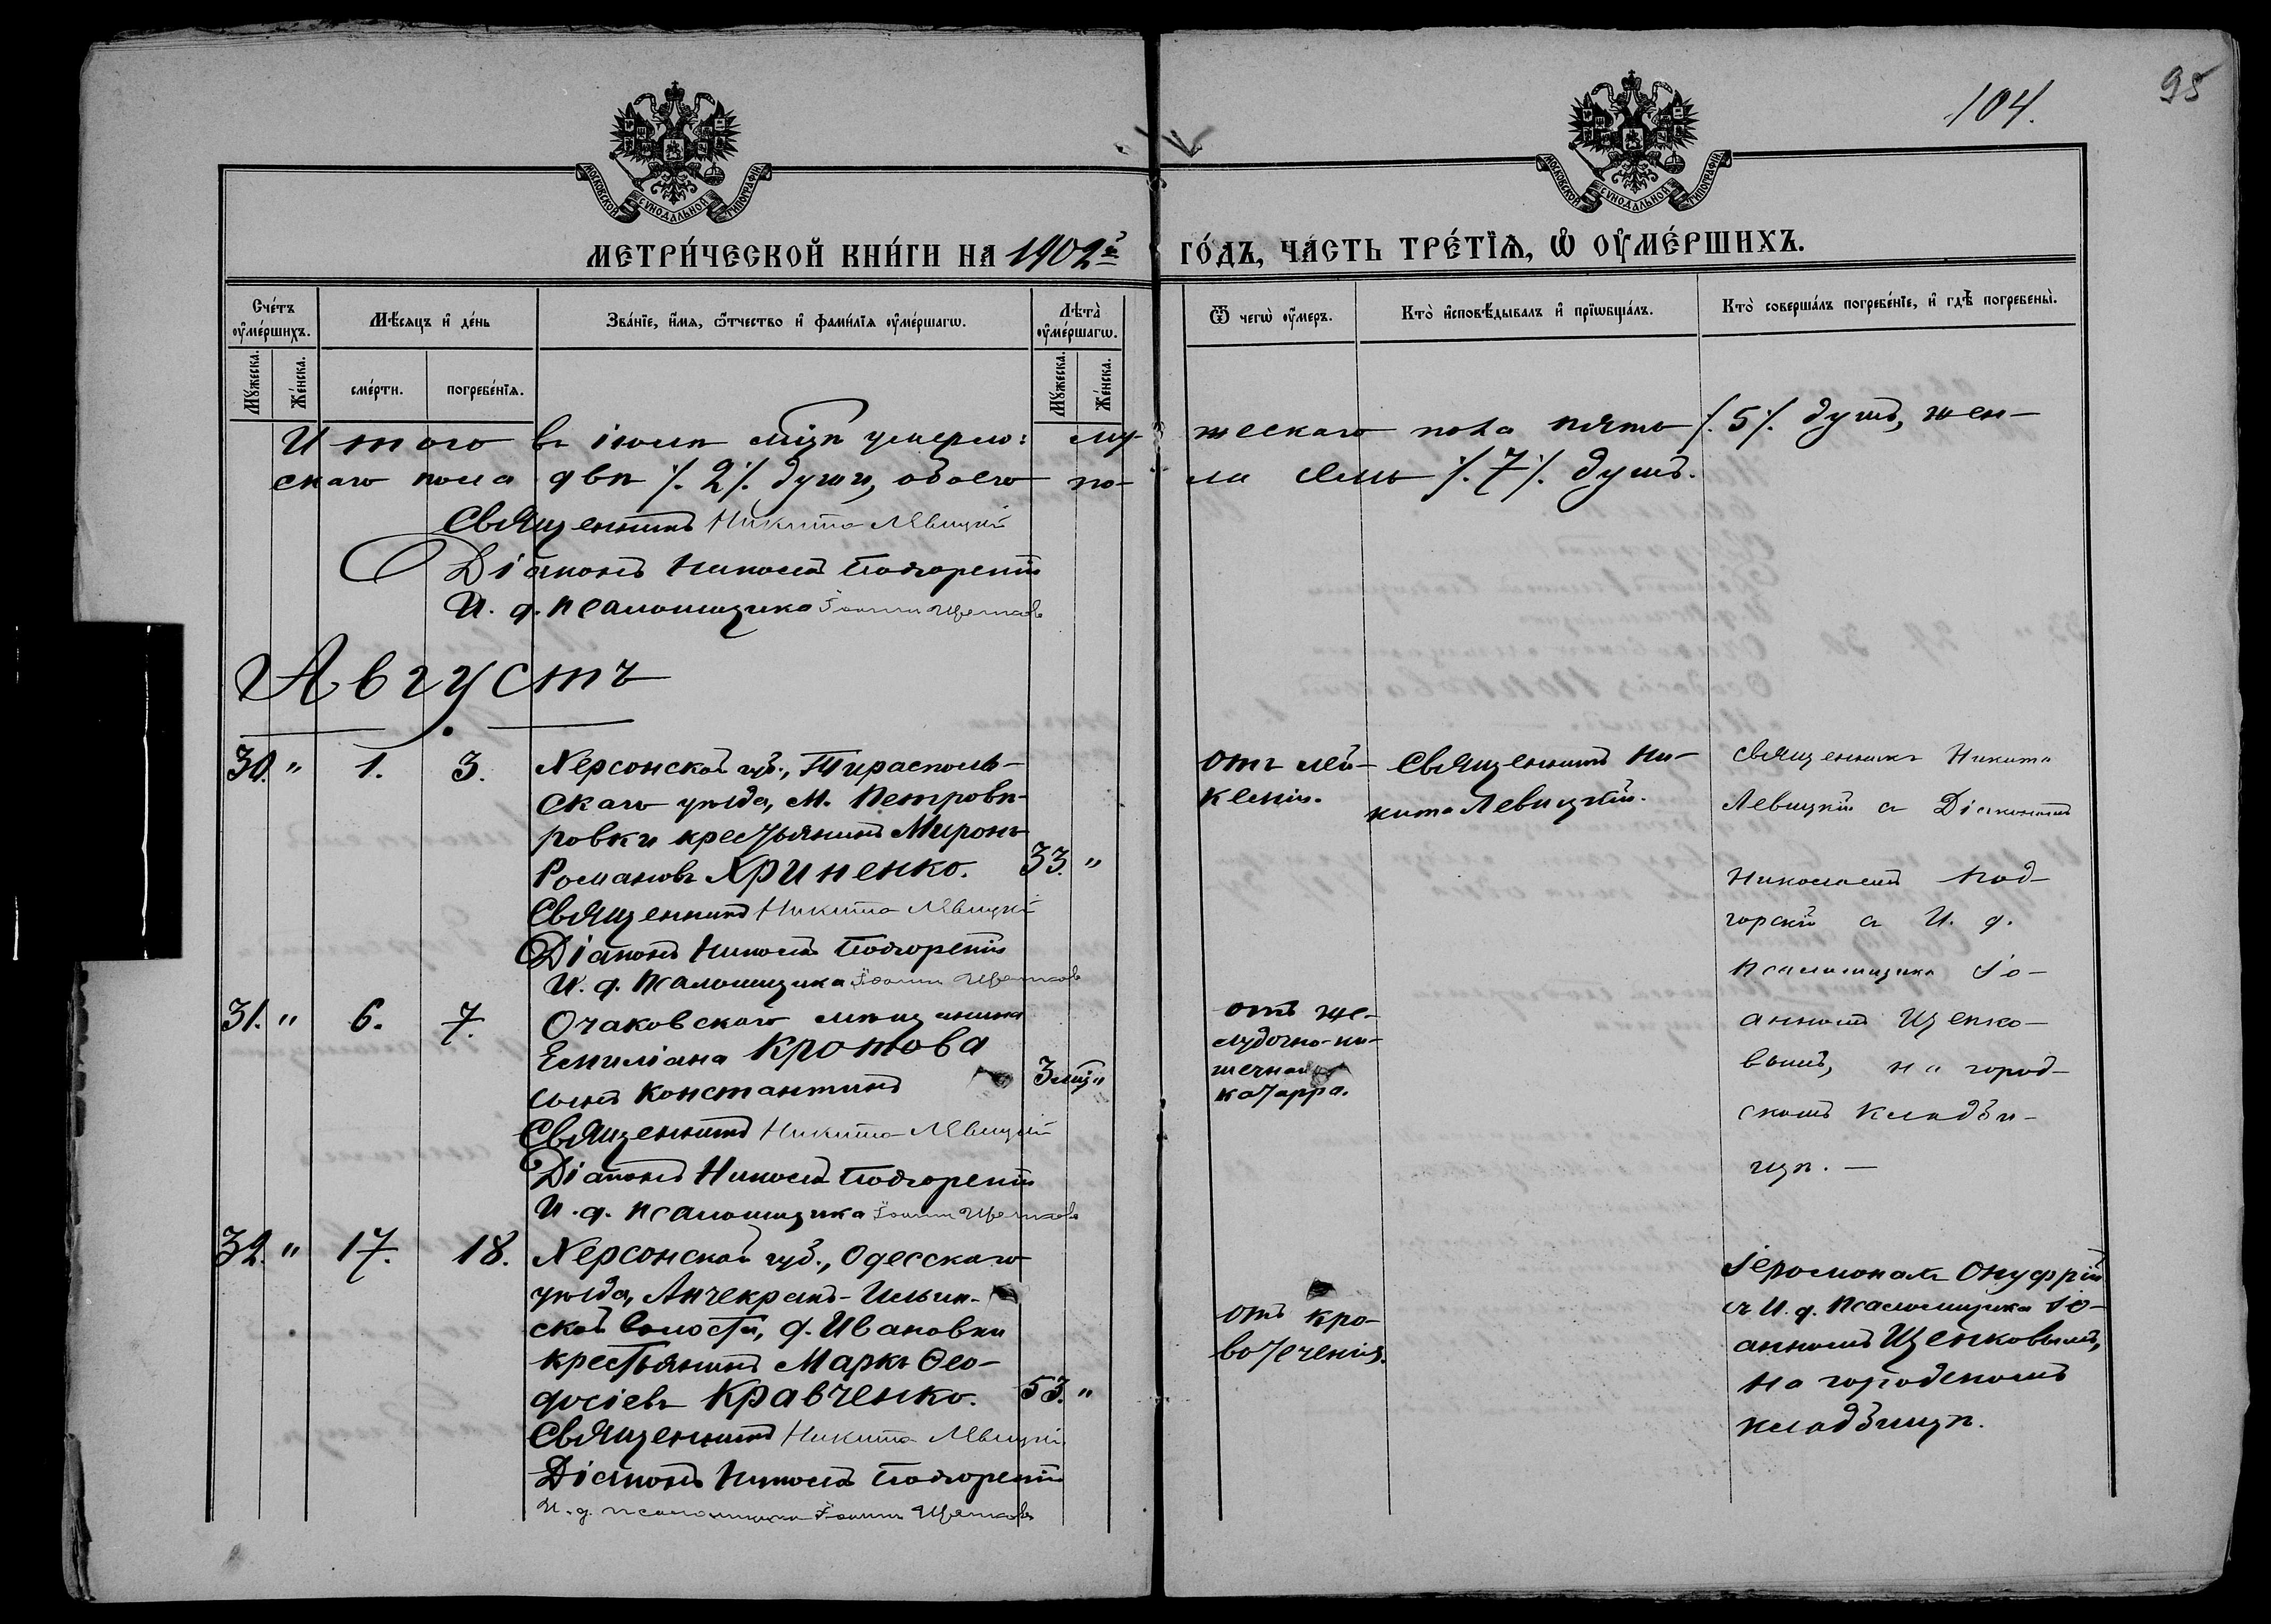 104.
95
МОСКОВСКОЙ СѴНОДАЛЬНОЙ ТИПОГРАФІИ
МОСКОВСКОЙ СѴНОДАЛЬНОЙ ТИПОГРАФІИ
МЕТРИ́ЧЕСКОЙ КНИ́ГИ НА 1902й ГО́ДЪ, ЧА́СТЬ ТРЕ́ТІѦ, Ѡ҆ ОУ҆МЕ́РШИХЪ.
Сче́тъ оу҆ме́ршихъ.
Мꙋжеска.
Же́нска.
Мѣ́сяцъ и҆ де́нь
сме́рти.
погребе́нїѧ.
Зва́нїе, и҆́мѧ, ѻ҆́тчество и҆ фами́лїѧ оу҆ме́ршагѡ.
Лѣта̀ оу҆ме́ршагѡ.
Мꙋжеска.
Же́нска.
Ѿ чегѡ̀ оу҆́меръ.
Кто̀ и҆сповѣ́дывалъ и҆ прїѡбща́лъ.
Кто̀ соверша́лъ погребе́нїе, и҆ гдѣ̀ погребены̀.
Итого въ іюлѣ м҃цѣ умерло: мужескаго пола пять /.5/. душъ, жен-
скаго пола двѣ /.2/. души, обоего пола семь /.7/. душъ.
Священникъ Никита Левицкій
Діаконъ Николай Подгорскій
И. д. псаломщика Іоаннъ Щенковъ
Августъ
30. " 1. 3.
Херсонской губ., Тирасполь-
скаго уѣзда, м. Петровѣ-
ровки крестьянинъ Миронъ
Романовъ Хриненко. 33. "
Священникъ Никита Левицкій
Діаконъ Николай Подгорскій
И. д. Псаломщика Іоаннъ Щенковъ
Отъ лей-
кеміи.
Священникъ Ни-
кита Левицкій.
Священникъ Никита
Левицкій съ Діакономъ
Николаемъ Под-
горскій съ И. д.
Псаломщика Іо-
анномъ Щенко-
вымъ, на город-
скомъ кладби-
щѣ. —
31. " 6. 7.
Очаковскаго мѣщанина
Емиліана Кротова
сынъ Константинъ 3 мц. "
Священникъ Никита Левицкій
Діаконъ Николай Подгорскій
И. д. псаломщика Іоаннъ Щенковъ
Отъ же-
лудочно-ки-
шечнаго
катарра.
32. " 17. 18.
Херсонской губ., Одесскаго
уѣзда, Анчекракъ-Ильин-
ской волости, д. Ивановки
крестьянинъ Маркъ Ѳео-
досіевъ Кравченко. 53. "
Священникъ Никита Левицкій
Діаконъ Николай Подгорскій
И. д. псаломщика Іоаннъ Щенковъ
Отъ кро-
вотеченія.
Іеромонахъ Онуфрій
съ И. д. Псаломщика Іо-
анномъ Щенковымъ,
на городскомъ
кладбищѣ.